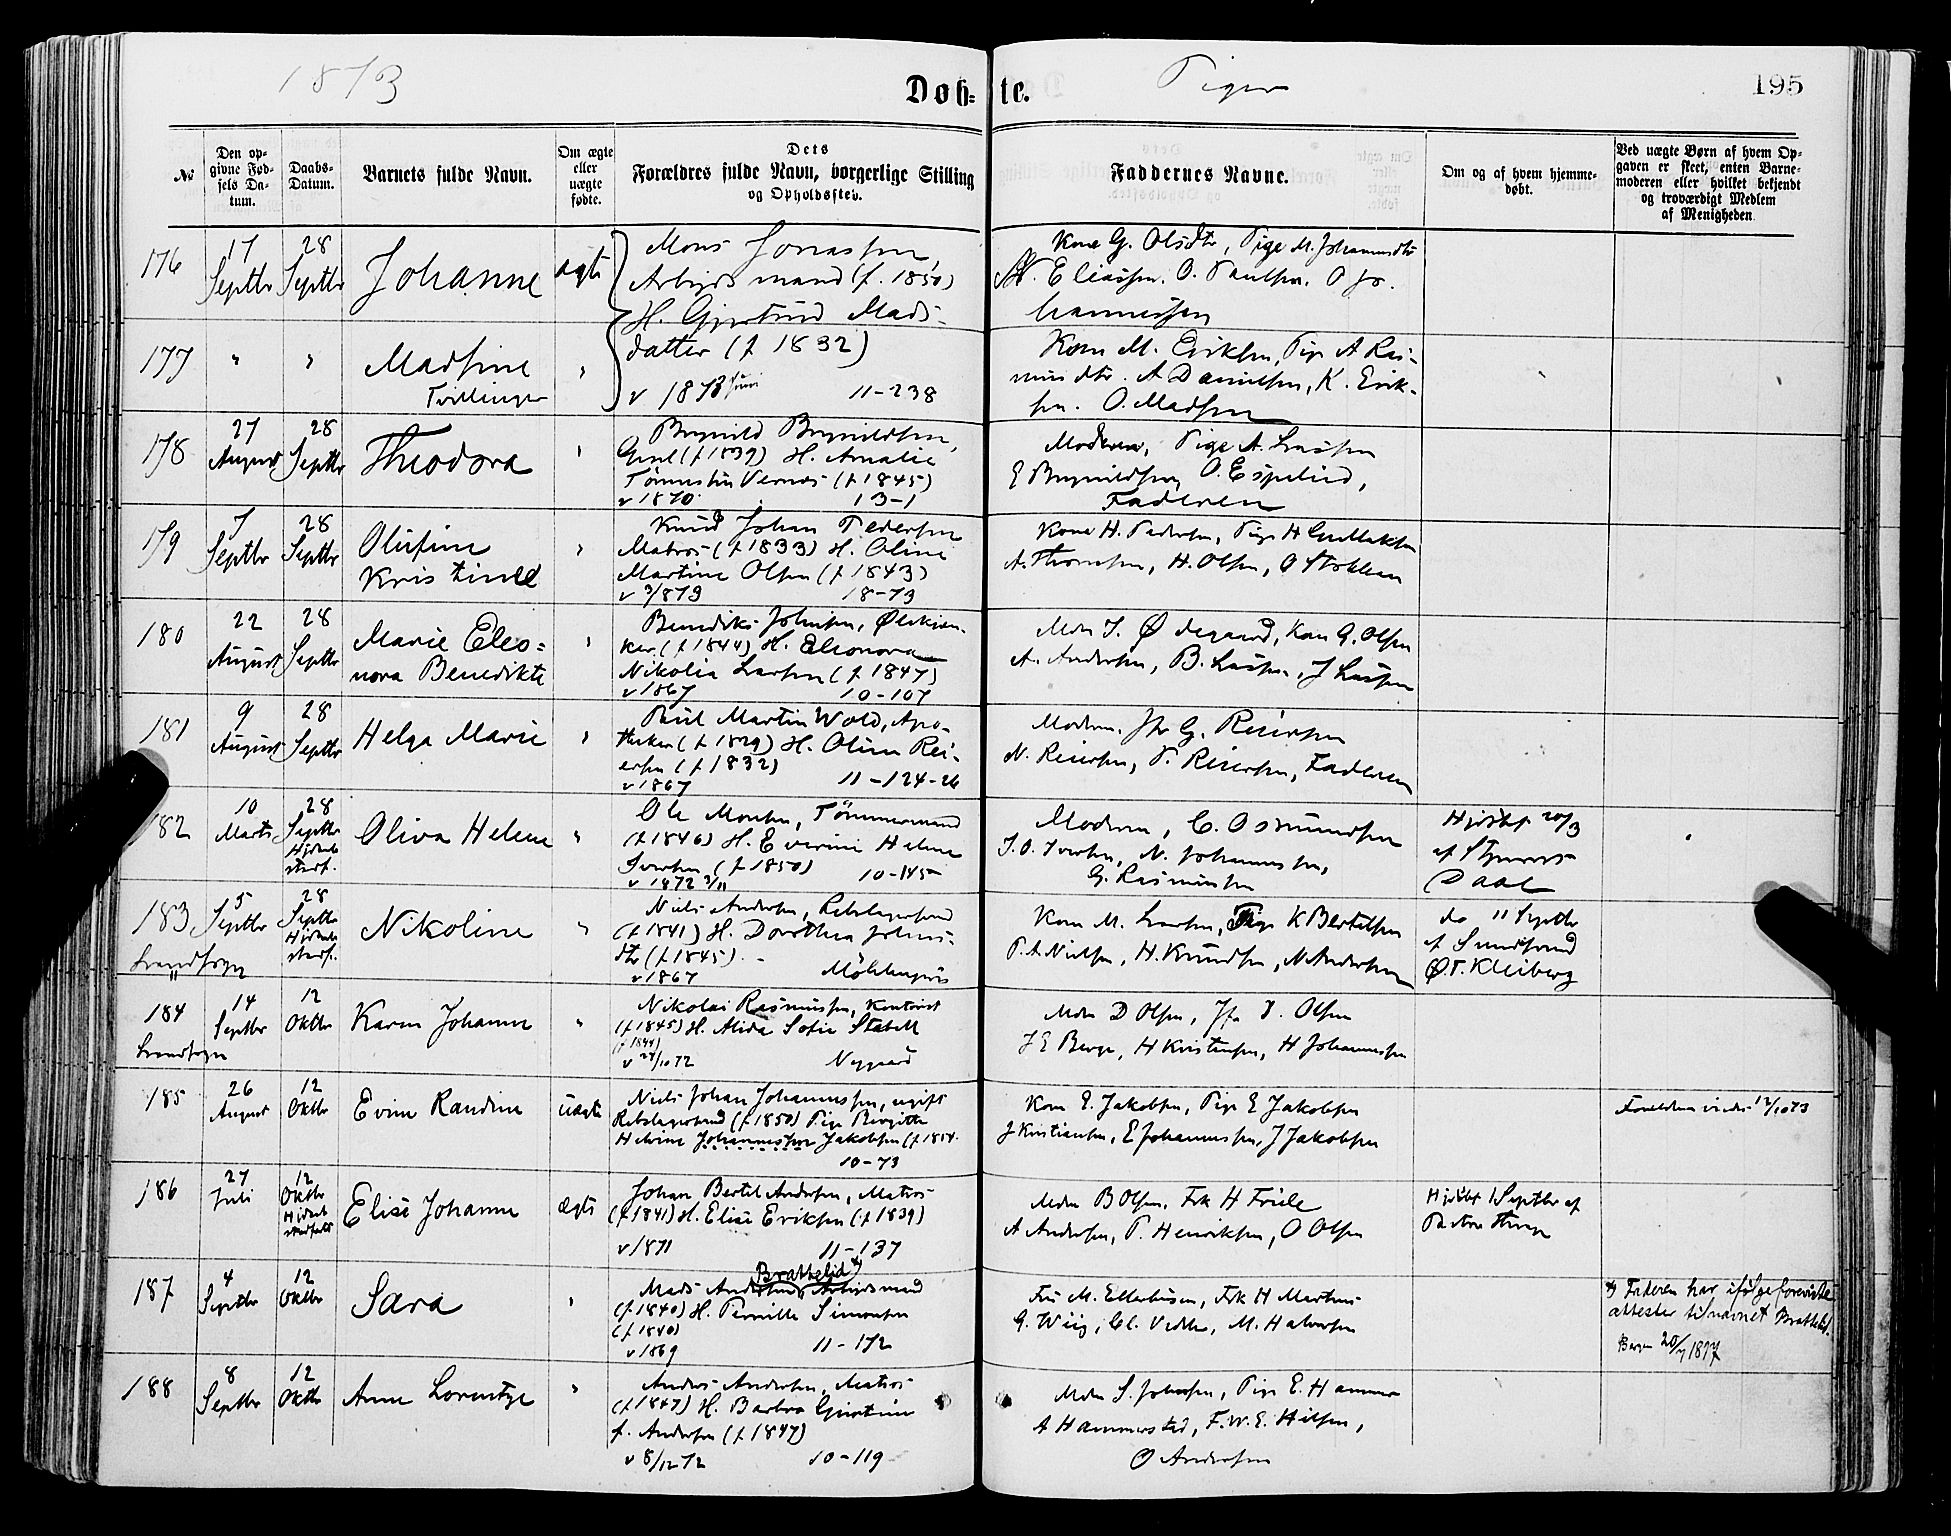 1873
Døb=te.
Piger
195
No
Den op-
givne Fød-
sels Da-
tum.
Daabs-
Datum.
Barnets fulde Navn.
Om ægte
eller
uægte
fødte.
Dets
Forældres fulde Navn, borgerlige Stilling
og Opholdssted.
Faddernes Navne.
Om og af hvem hjemme-
døbt.
Ved uægte Børn af hvem Op-
gaven er skeet, enten Barne-
moderen eller hvilket bekjendt
og troværdigt Medlem
af Menigheden.
176
17
Septbr
28
Septbr
Johanne
ægte
Mons Jonassen,
Arbejdsmand (f. 1850)
H. Gjertrud Mads-
datter (f 1832)
v 1873 Juni 11-238
Kone G. Olsdtr, Pige M. Johannesdtr
Eliassen. O. Paulsen. O Jo-
hannessen
177
"
"
Madsine
Tvillinger
"
Kone M. Eriksen, Pige A Ras-
musdtr. A Danielsen, K. Erik-
sen. O. Madsen
178
27
August
28
Septbr
Theodora
"
Brynild Brynildsen,
(f 1839) H. Amalie
Vernøs (f 1845)
v 1870 13-1
Moderen, Pige A. Larsen
E Brynildsen, O. Espelid,
Faderen
179
7
Septbr
28
Septbr
Olufine
Kristine
"
Knud Johan Pedersen
Matros (f 1833) H. Oline
Martine Olsen (f 1843)
v 3/873 18-73
Kone H. Pedersen, Pige H Gullaksen
A. Thomsen, H. Olsen, O
180
22
August
28
Septbr
Marie Eleo=
nora Benedikte
"
Benedikt Johnsen, Ølskjæn-
ker (f 1844) H. Eleonora
Nikolia Larsen (f 1847)
v 1867 10-107
Mdm J. Ødegaard, Kone G. Olsen
A. Andersen, B. Larsen, J Larsen
181
9
August
28
Septbr
Helga Marie
"
Paul Martin Wold, Apo-
theker (f 1829) H. Olina Rei-
ersen (f 1832)
v 1867 11-124-26
Moderen. Jfr G. Reiersen
N. Reiersen, P. Reiersen, Faderen
182
10
Marts
28
Septbr
Hjdaab
stadf.
Oliva Helene
"
Ole Monsen, Tømmermand
(f 1846) H. Everine Helene
Iversen (f 1850)
v 1872 3/11 10-145
Moderen, C. Osmundsen
J. O. Iversen, N. Johannessen,
G. Rasmussen
Hjdøbt 20/3
af
Daae
183
Landsogn
5
Septbr
28
Septbr
Hjdaab
stadf.
Nikoline
"
Niels Andersen, Rebslagersvend
(f 1841) H. Dorothea Johns-
dtr (f 1845).
v 1867 Möhlenpris
Kone M. Larsen, Pige K Bertelsen
P. A. Nielsen, H. Knudsen, N. Andersen
do 11 Septbr
af
Ø. T. Kleiberg
184
Landsogn
14
Septbr
12
Oktbr
Karen Johanne
"
Nikolai Rasmussen, Kontorist
(f 1845) H. Alida Sofie Stabell
(f 1844)
v 24/10 72 Nygaard
Mdm D Olsen, Jfr D. Olsen
J E Berge, H Kristensen, H Johannessen
185
26
August
12
Oktbr
Evine Randine
uægte
Niels Johan Johannessen, ugift
Rebslagersvend (f 1850) Pige Birgitte
Helvine Johannessen Jakobsen (f 1854.
10-73
Kone E. Jakobsen, Pige E Jakobsen
J Kristiansen, E Johannessen, J Jakobsen
Forældrene viede 12/10 73
186
27
Juli
12
Oktbr
Hjdaab
stadfæst
Elise Johanne
ægte
Johan Bertel Andersen, Matros
(f 1841) H. Elise Eriksen (f 1839)
v 1871 11-137
Mdm B Olsen, Frk H Friele
A Andersen, P. Henriksen, O Olsen
Hjdøbt 1 Septbr af
187
4
Septbr
12
Oktbr
Sara
"
Brattelid x)
Mads Andersen, Arbeidsmand
(f 1840) H. Pernille Simonsen
(f 1840)
v 1869 11-172
Fru M. Ellerhusen, Frk H Martens
G. Wiig, Cl. Vedeler, M. Halvorsen
x) Faderen har ifølge foreviste
attester tilnavnet Brattelid.
Bergen 20/7 1897
188
8
Septbr
12
Oktbr
Anne Lorentze
"
Anders Andersen, Matros
(f 1847) H. Barbra Gjertine
f. Andersen (f 1847)
v 8/12 72 10-119
Mdm S. Johnsen, Pige E. Hammer
A Hammerstad, F. W. E. Nilsen,
O Andersen